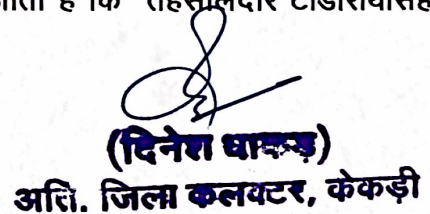 जाता है कि तहसीलदार टोडारायसिंह
(दिनेश धाकड़)
अति. जिला कलक्टर, केकड़ी